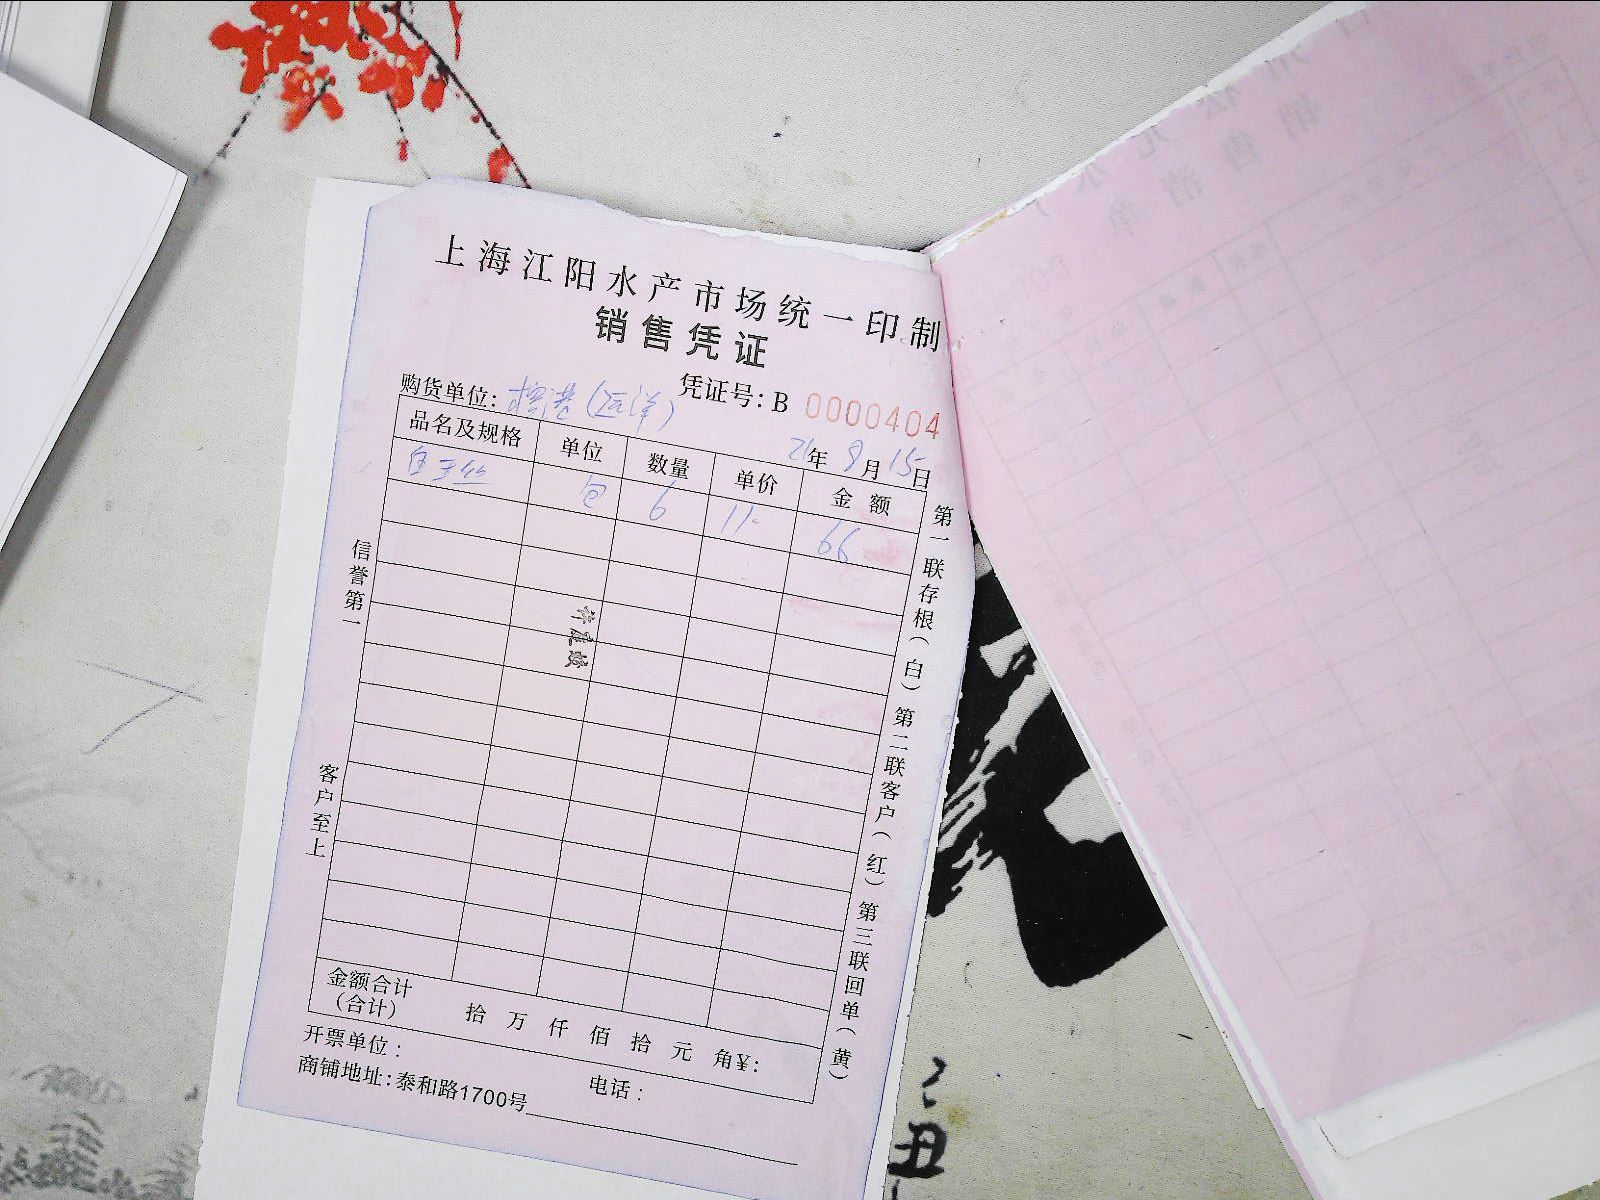 上海江阳水产市场统一印制
销售凭证
凭证号：B 0000404
购货单位：(远洋)
21年9月15日
品名及规格 单位 数量 单价 金额
白玉丝 包 6 11- 66
信誉第一
客户至上
第一联存根(白) 第二联客户(红) 第三联回单(黄)
金额合计
(合计) 拾 万 仟 佰 拾 元 角¥：
开票单位： 电话：
商铺地址：泰和路1700号
销售清单
丑